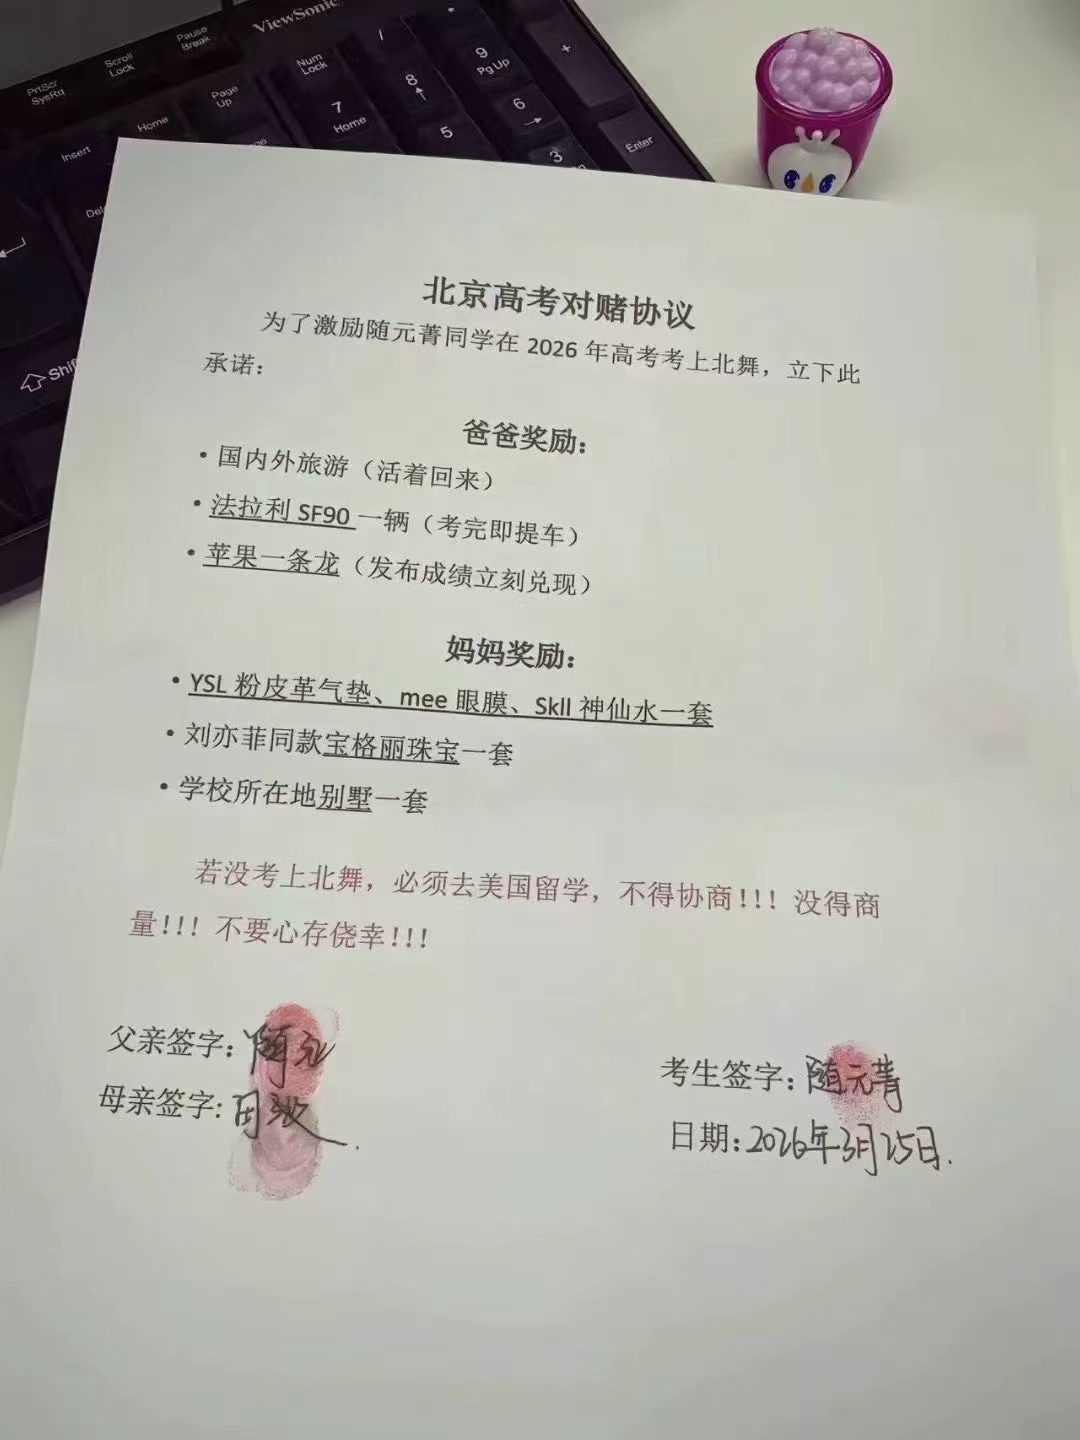 ViewSonic
PrtScr
SysRq
Scroll
Lock
Pause
Break
Insert
Home
Page
Up
Num
Lock
/
*
7
Home
8
9
Pg Up
+
5
6
3
Enter
Shift
北京高考对赌协议
为了激励随元菁同学在 2026 年高考考上北舞，立下此
承诺：
爸爸奖励：
• 国内外旅游（活着回来）
• 法拉利 SF90 一辆（考完即提车）
• 苹果一条龙（发布成绩立刻兑现）
妈妈奖励：
• YSL 粉皮革气垫、mee 眼膜、Skll 神仙水一套
• 刘亦菲同款宝格丽珠宝一套
• 学校所在地别墅一套
若没考上北舞，必须去美国留学，不得协商！！！没得商
量！！！不要心存侥幸！！！
父亲签字：随元
母亲签字:
考生签字：随元菁
日期：2026年3月25日.